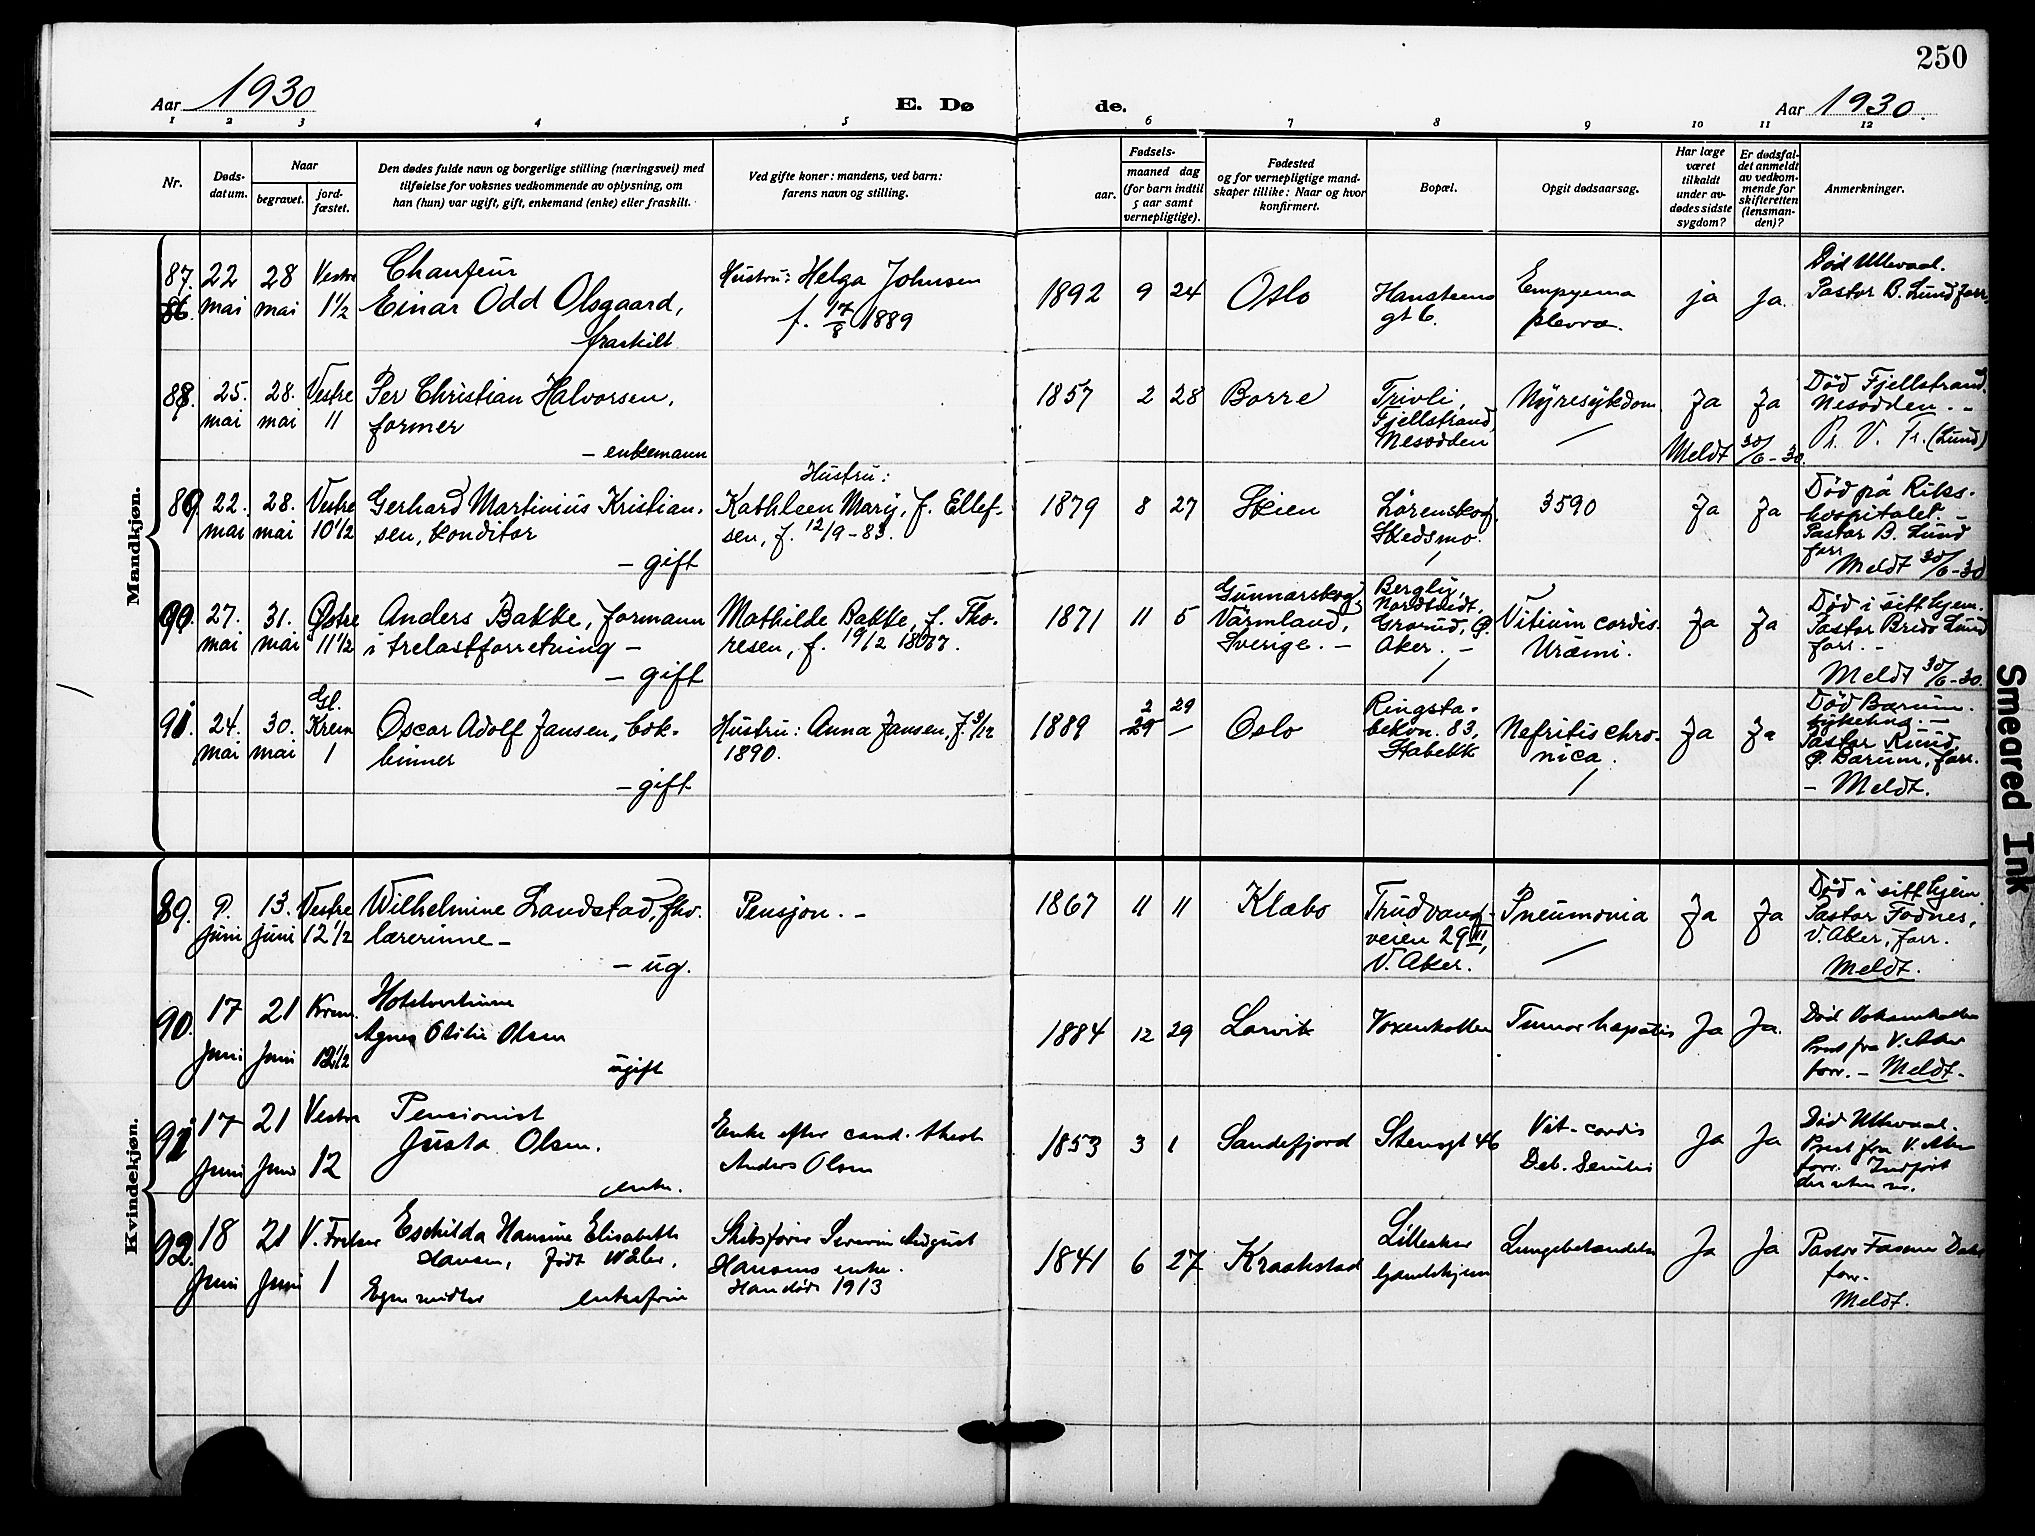 250
Aar 1930
E. Dø
de.
Aar 1930.
1 2 3 4 5 6 7 8 9 10 11 12
Nr.
Døds-
datum.
Naar
begravet.
jord-
fæstet.
Den dødes fulde navn og borgerlige stilling (næringsvei) med
tilføielse for voksnes vedkommende av oplysning, om
han (hun) var ugift, gift, enkemand (enke) eller fraskilt.
Ved gifte koner: mandens, ved barn:
farens navn og stilling.
Fødsels-
aar.
maaned dag
(for barn indtil
5 aar samt
vernepligtige).
Fødested
og for vernepligtige mand-
skaper tillike: Naar og hvor
konfirmert.
Bopæl.
Opgit dødsaarsag.
Har læge
været
tilkaldt
under av-
dødes sidste
sygdom?
Er dødsfal-
det anmeldt
av vedkom-
mende for
skifteretten
(lensman-
den)?
Anmerkninger.
Mandkjøn.
87.
86.
22
mai
28
mai
Vestre
1½
Chauføur
Einar Odd Olsgaard,
fraskilt
Hustru: Helga Johnsen
f. 17/8 1889
1892 9 24
Oslo
Hansteens
gt 6.
Empyema
plevræ.
ja
Ja.
Død Ullevaal.
Pastor B. Lund forr.
88.
25.
mai
28.
mai
Vestre
11
Per Christian Halvorsen,
former
- enkemann
1857 2 28
Borre
Trivli,
Fjellstrand,
Nesodden
Nyresykdom
Ja
Ja
Meldt 30/6-30.
Død Fjellstrand
Nesodden. -
Pr. V. Fr. (Lund)
89.
22.
mai
28.
mai
Vestre
10½
Gerhard Martinius Kristian-
sen, konditor
- gift
Hustru:
Kathleen Mary, f. Ellef-
sen, f. 12/9-83.
1879 8 27
Skien
Lørenskog,
Skedsmo.
3590
Ja
Ja
Død på Riks-
hospitalet. -
Pastor B. Lund
forr.
Meldt 30/6-30
90.
27.
mai
31.
mai
Østre
11½
Anders Bakke, formann
i trelastforretning -
- gift
Mathilde Bakke, f. Tho-
resen, f. 19/2 1867.
1871 11 5
Gunnarskog,
Värmland,
Sverige. -
Bergly,
Nordtvedt,
Grorud, Ø.
Aker. -
Vitium cordis.
Urämi.
Ja
Ja
Død i sitt hjem.
Pastor Bredo Lund
forr. -
Meldt 30/6-30.
91.
24.
mai
30.
mai
Gl.
Krem
1
Oscar Adolf Jansen, bok-
binner
- gift
Hustru: Anna Jansen, f. 3/12
1890.
1889 2 29
29 -
Oslo
Ringsta-
bekvn. 83,
Stabekk
Nefritis chro-
nica.
Ja
Ja
Død Bærum.
sykehus. -
Pastor Ruud,
Ø. Bærum, forr.
- Meldt.
Kvindekjøn.
89.
9.
Juni
13.
Juni
Vestre
12½
Wilhelmine Landstad, fhv.
lærerinne -
- ug.
Pensjon. -
1867 11 11
Klæbo
Trudvang-
veien 29 II,
V. Aker.
Pneumonia
Ja
Ja
Død i sitt hjem
Pastor Fodnes,
V. Aker, forr.
Meldt.
90.
17
Juni
21
Juni
Krem.
12½
Hotelvertinne
Agnes Otilie Olsen
ugift
1884 12 29
Larvik
Voxenkollen
Tumor hepatis
Ja
Ja.
Død Voksenkollen
Prest fra V. Aker
forr. - Meldt.
91
17
Juni
21
Juni
Vestre
12
Pensionist
Justa Olsen.
enke.
Enke efter cand. theol
Anders Olsen
1853 3 1
Sandefjord
Stensgt 46
Vit. cordis
Deb. Senilis
Ja
Ja
Død Ullevaal.
Prest fra V. Aker
forr. Indført
92.
18
Juni
21
Juni
V. Frelser
1
Eschilda Hansine Elisabeth
Hansen, født Wåler.
Egne midler enkefrue
Skibsfører Severin August
Hansens enke.
Han døde 1913
1841 6 27
Kraakstad
Lilleaker
Gamlehjem
Lungebetændelse
Ja
Ja
Pastor
forr.
Meldt.
Smeared Ink